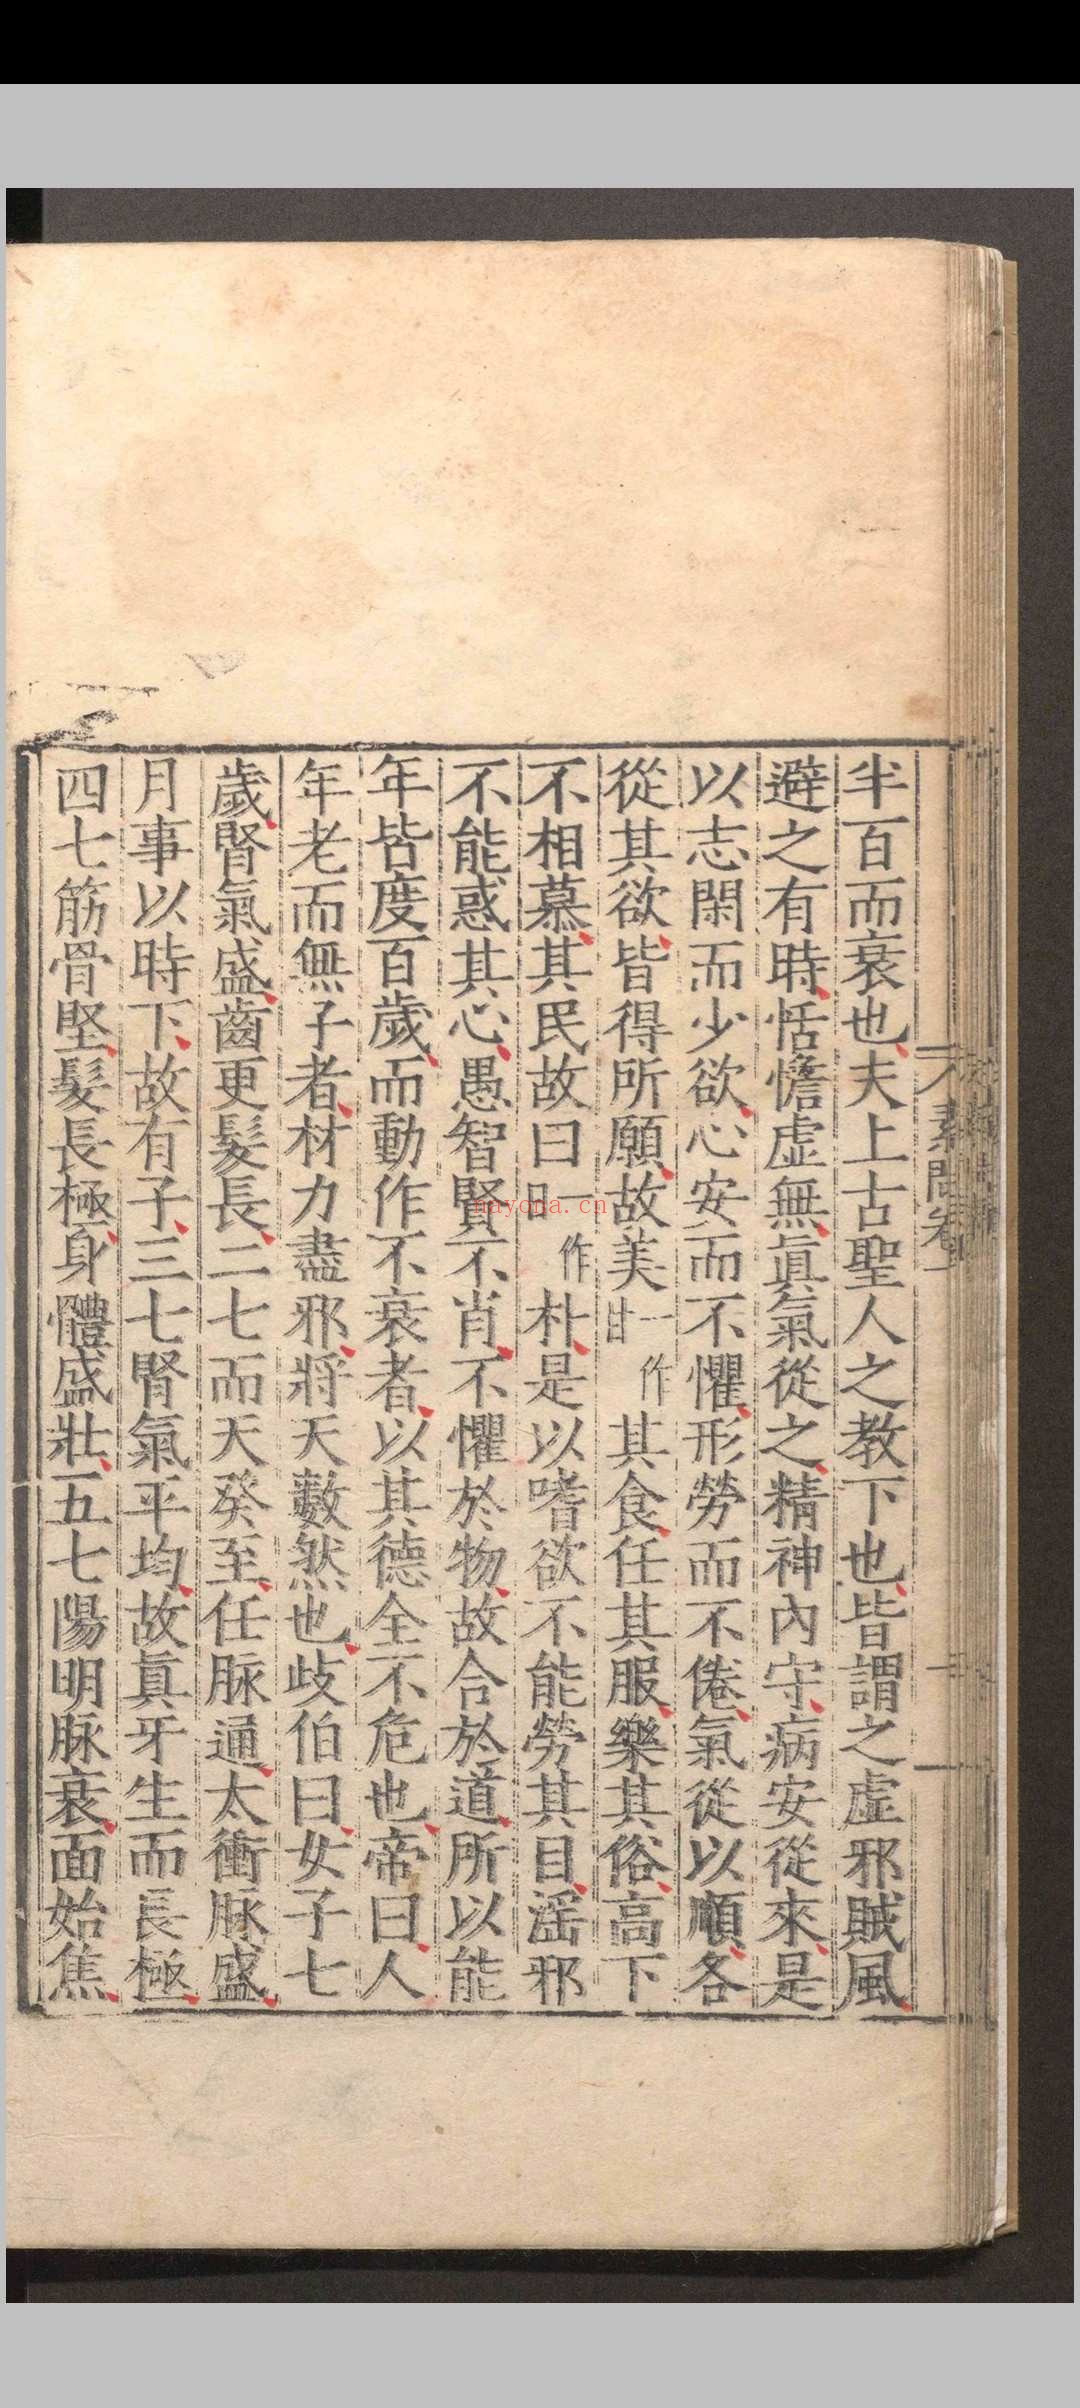 半百而衰也夫上古聖人之教下也皆謂之虛邪賊風
避之有時恬憺虛無眞氣從之精神內守病安從來是
以志閑而少欲心安而不懼形勞而不倦氣從以順各
從其欲皆得所願故美一作甘其食任其服樂其俗高下
不相慕其民故曰一作日朴是以嗜欲不能勞其目淫邪
不能惑其心愚智賢不肖不懼於物故合於道所以能
年皆度百歲而動作不衰者以其德全不危也帝曰人
年老而無子者材力盡邪將天數然也歧伯曰女子七
歲腎氣盛齒更髮長二七而天癸至任脉通太衝脉盛
月事以時下故有子三七腎氣平均故眞牙生而長極
四七筋骨堅髮長極身體盛壯五七陽明脉衰面始焦
素問卷一
nayona.cn